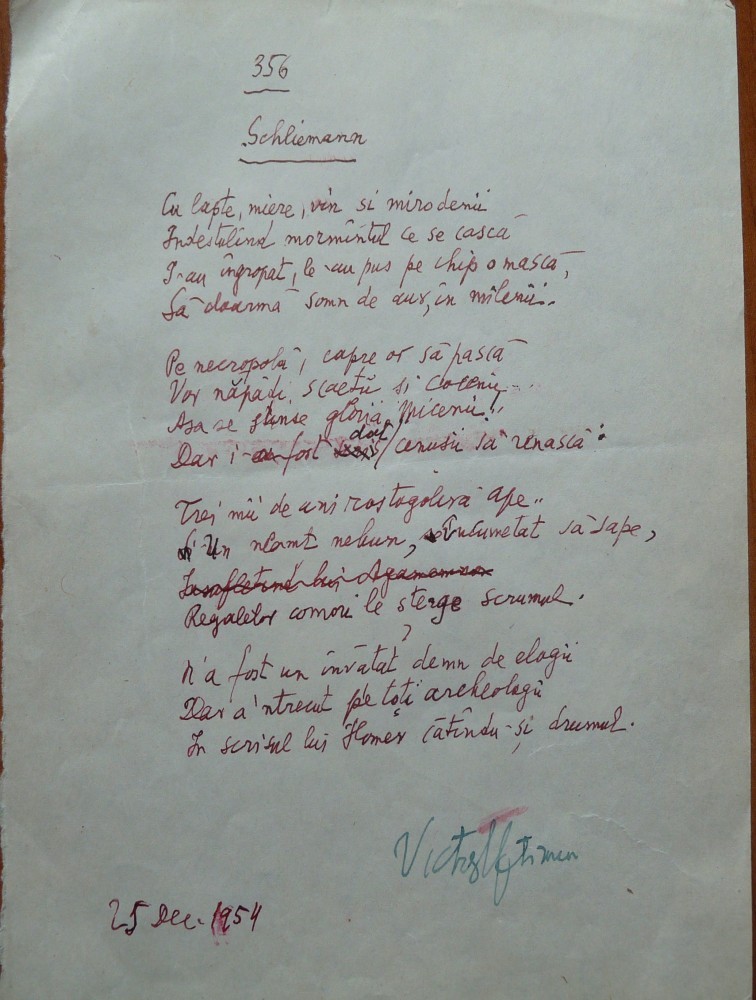 356
Schliemann
Cu lapte, miere, vin si mirodenii
Indestulind mormîntul ce se cască
I-au îngropat, le-au pus pe chip o mască,
Să doarmă somn de aur, în milenii..
Pe necropolă, capre or să pască
Vor năpădi, scaeții si
Asa se stinse gloria Micenii!..
Dar i-a fost dat cenusii să renască:
Trei mii de ani rostogoliră ape..
Un neamt nebun, încumetat să sape,
Insuflețind lui Agamemnon
Regalelor comori le sterge scrumul.
N'a fost un învătat demn de elogii
Dar a'ntrecut pe toți archeologii
In scrisul lui Homer cătîndu-și drumul.
Victor Eftimiu
25 Dec. 1954